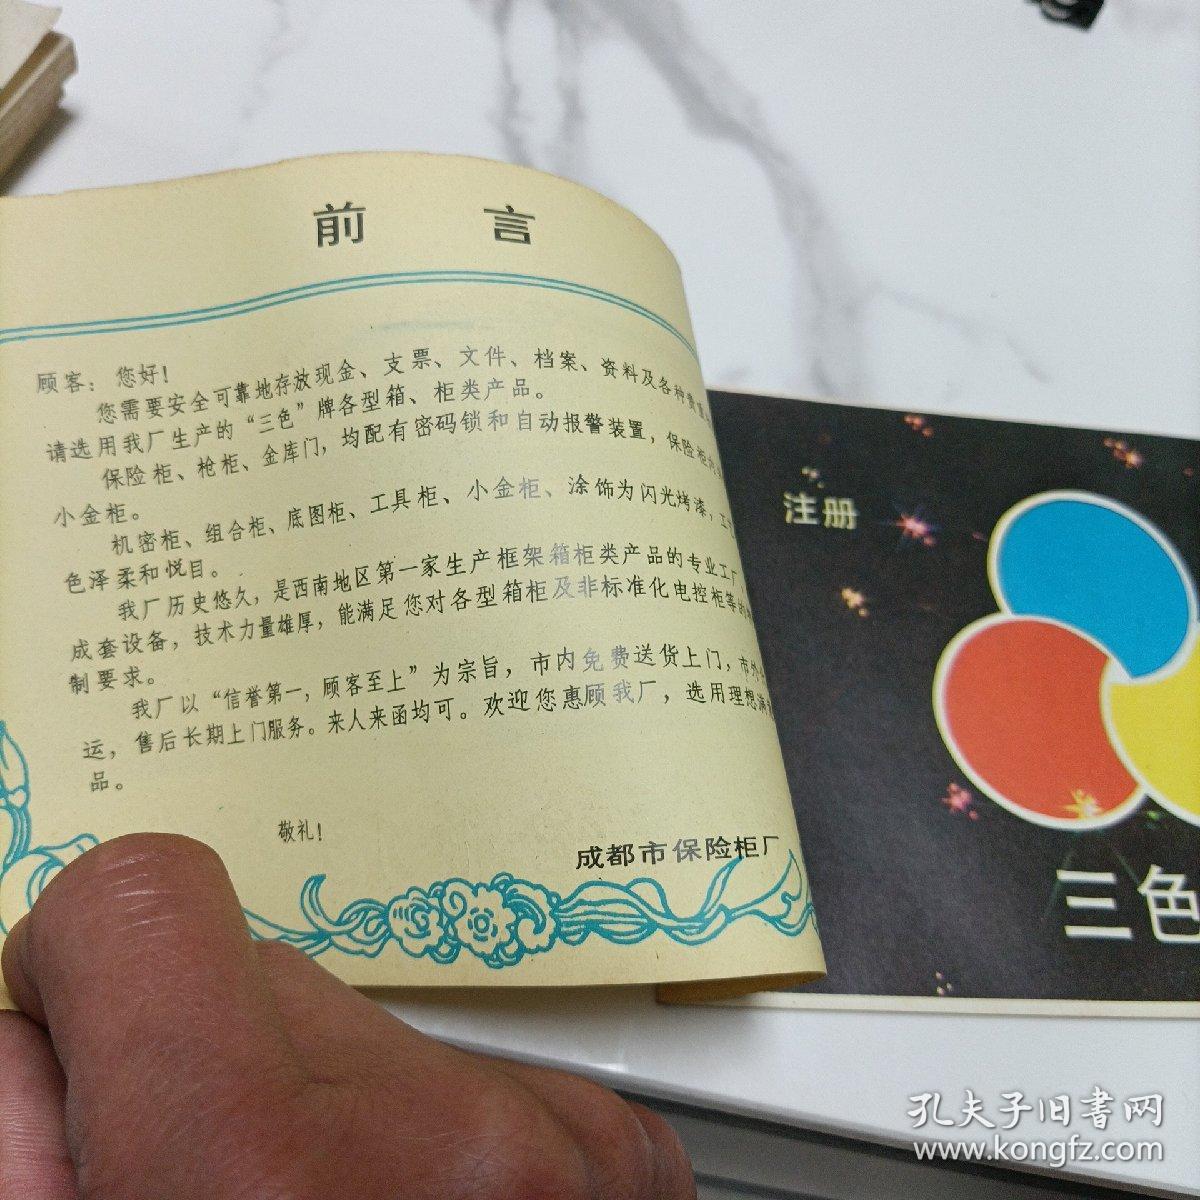 前 言
顾客：您好！
您需要安全可靠地存放现金、支票、文件、档案、资料及各种贵重
请选用我厂生产的“三色”牌各型箱、柜类产品。
保险柜、枪柜、金库门，均配有密码锁和自动报警装置，保险柜内
小金柜。
机密柜、组合柜、底图柜、工具柜、小金柜、涂饰为闪光烤漆，工
色泽柔和悦目。
我厂历史悠久，是西南地区第一家生产框架箱柜类产品的专业工厂
成套设备，技术力量雄厚，能满足您对各型箱柜及非标准化电控柜等的
制要求。
我厂以“信誉第一，顾客至上”为宗旨，市内免费送货上门，市外
运，售后长期上门服务。来人来函均可。欢迎您惠顾我厂，选用理想满
品。
敬礼！
成都市保险柜厂
注册
三色
孔夫子旧书网
www.kongfz.com